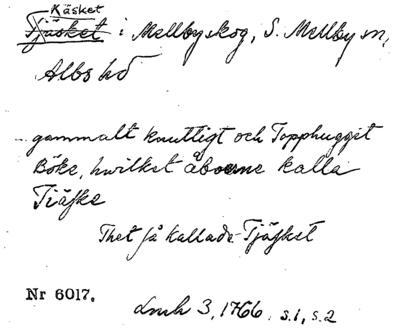 Käsket
Tjäsket i Mellbyskog, S. Mellby sn,
Albo hd
gammalt knuttigt och Topphugget
Böke, hwilket åboerne kalla
Tiäske
Thet så kallade Tjäsket
Nr 6017.
Lmh 3, 1766, s.1, s.2